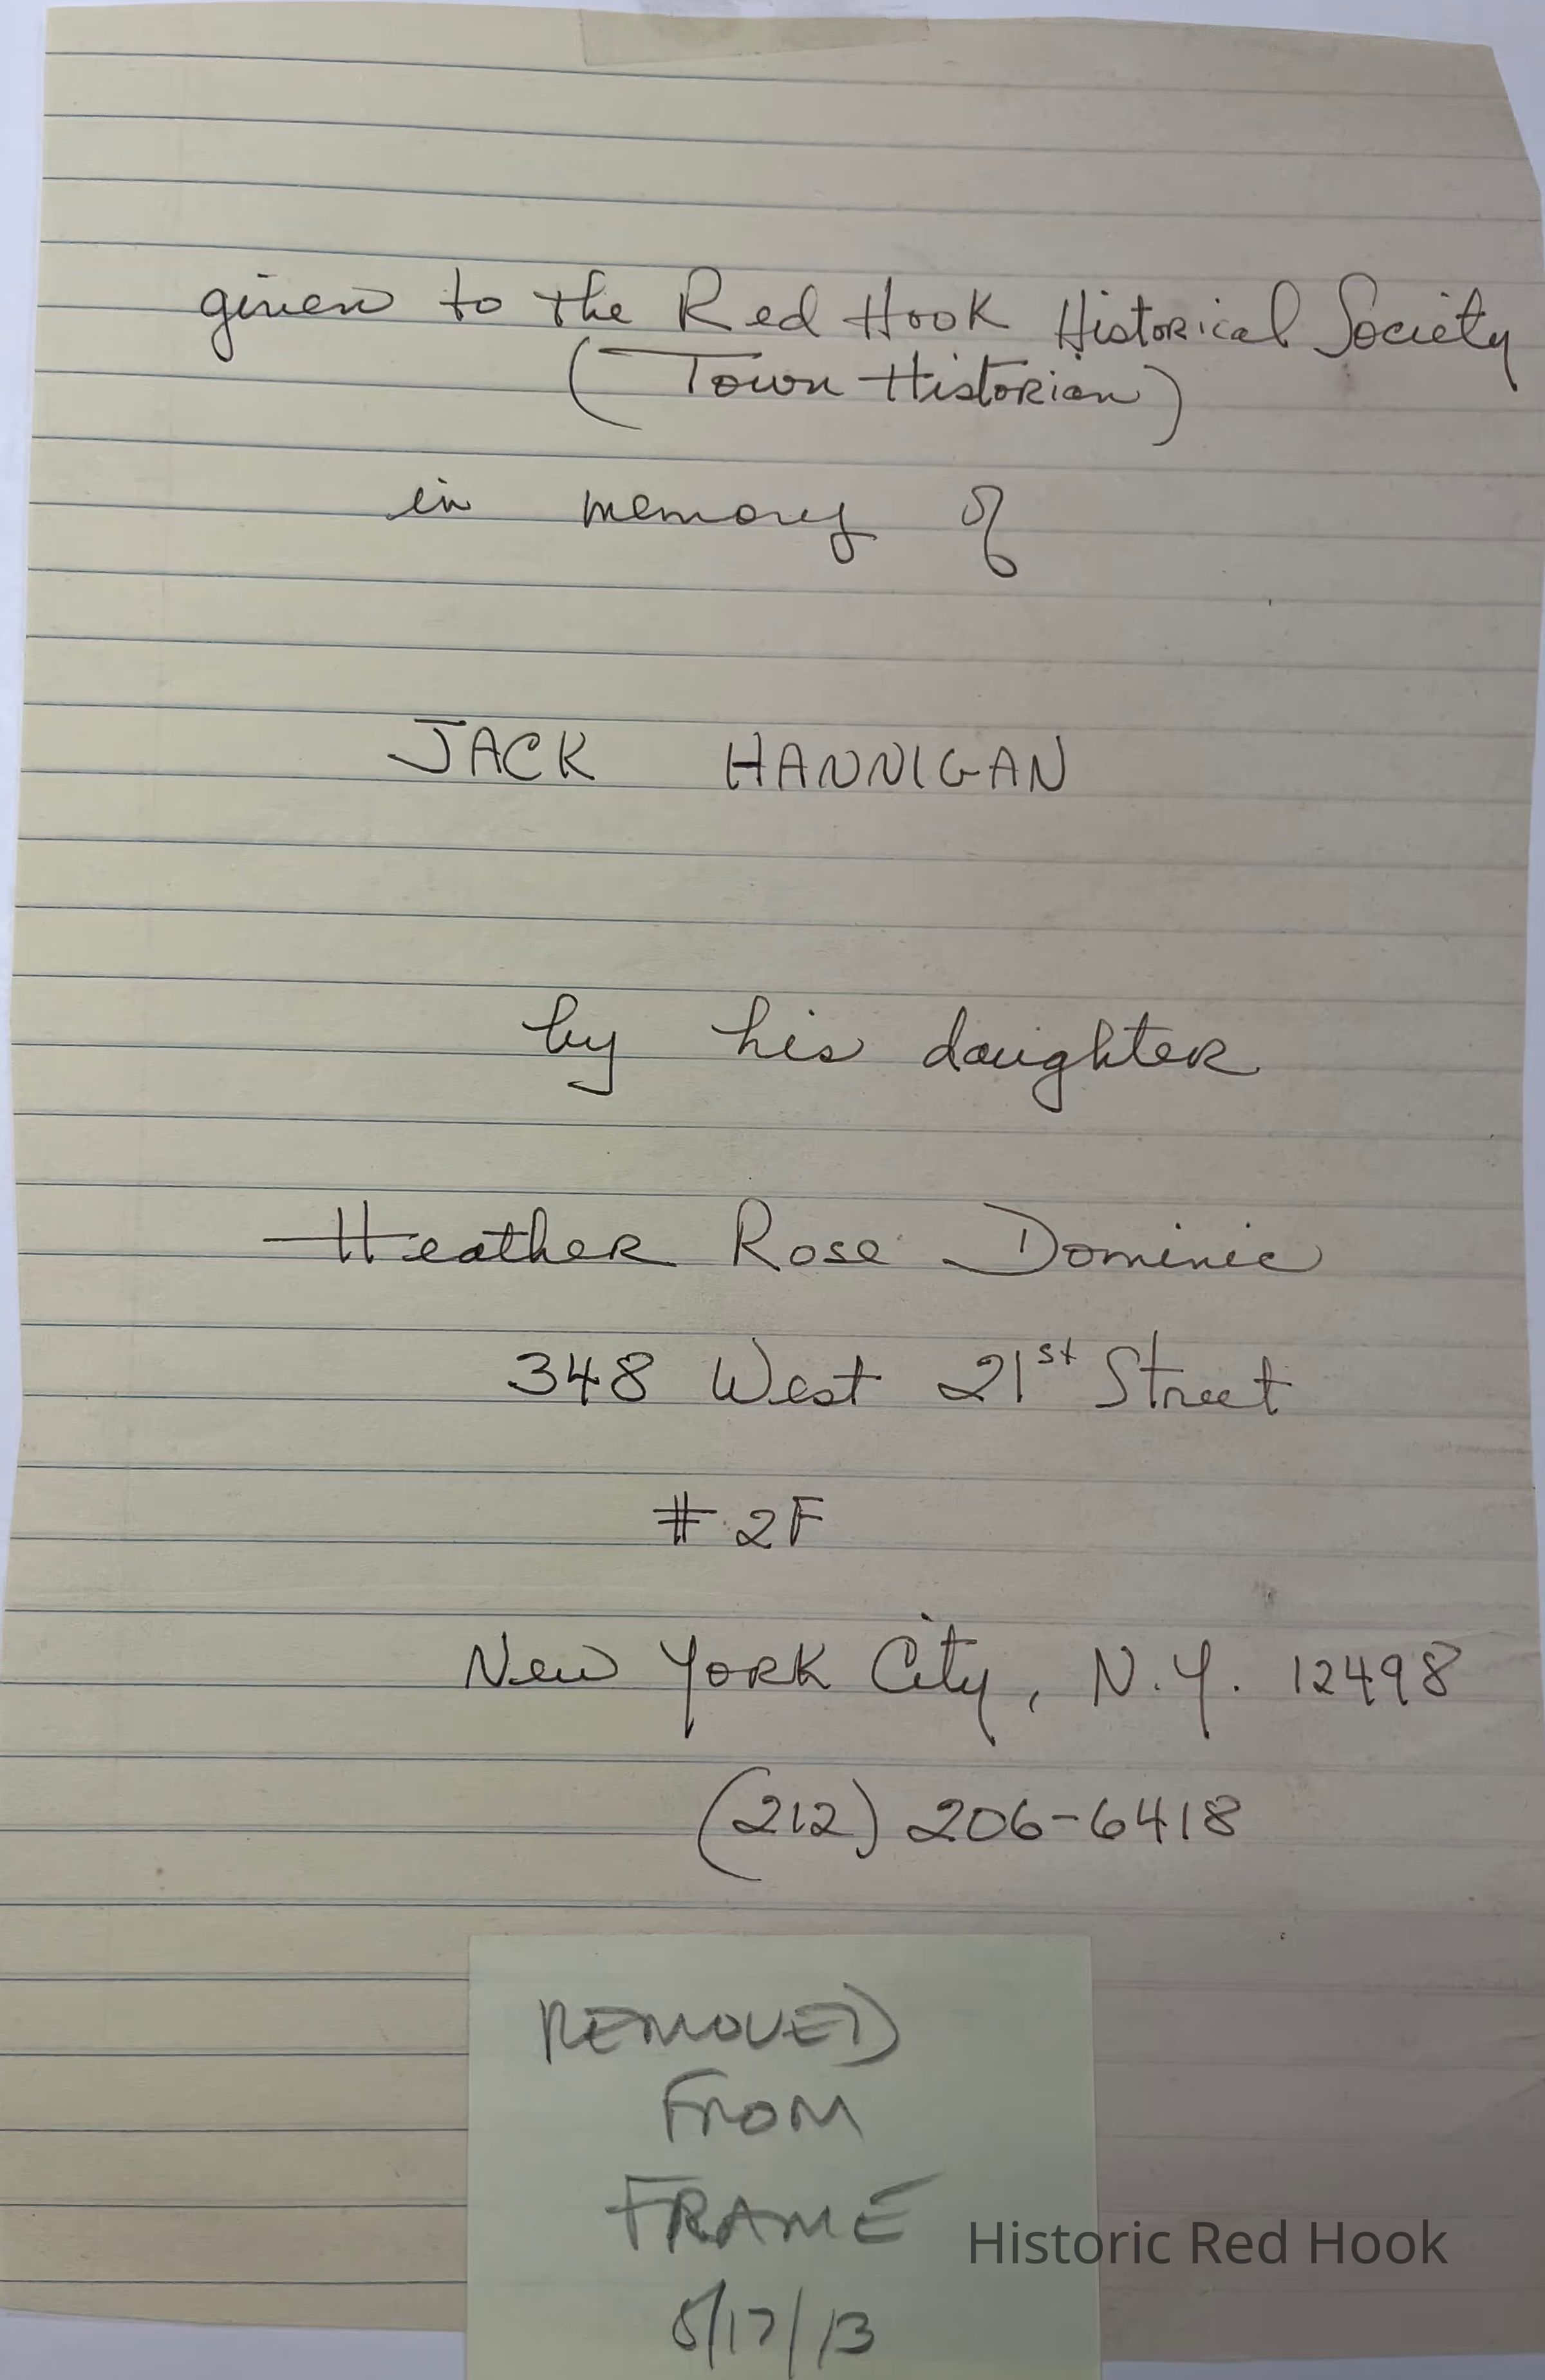 given to the Red Hook Historical Society
(Town Historian)
in memory of
JACK HANNIGAN
by his daughter
Heather Rose Dominic
348 West 21st Street
# 2F
New York City, N.Y. 12498
(212) 206-6418
REMOVED
FROM
FRAME
5/17/13
Historic Red Hook